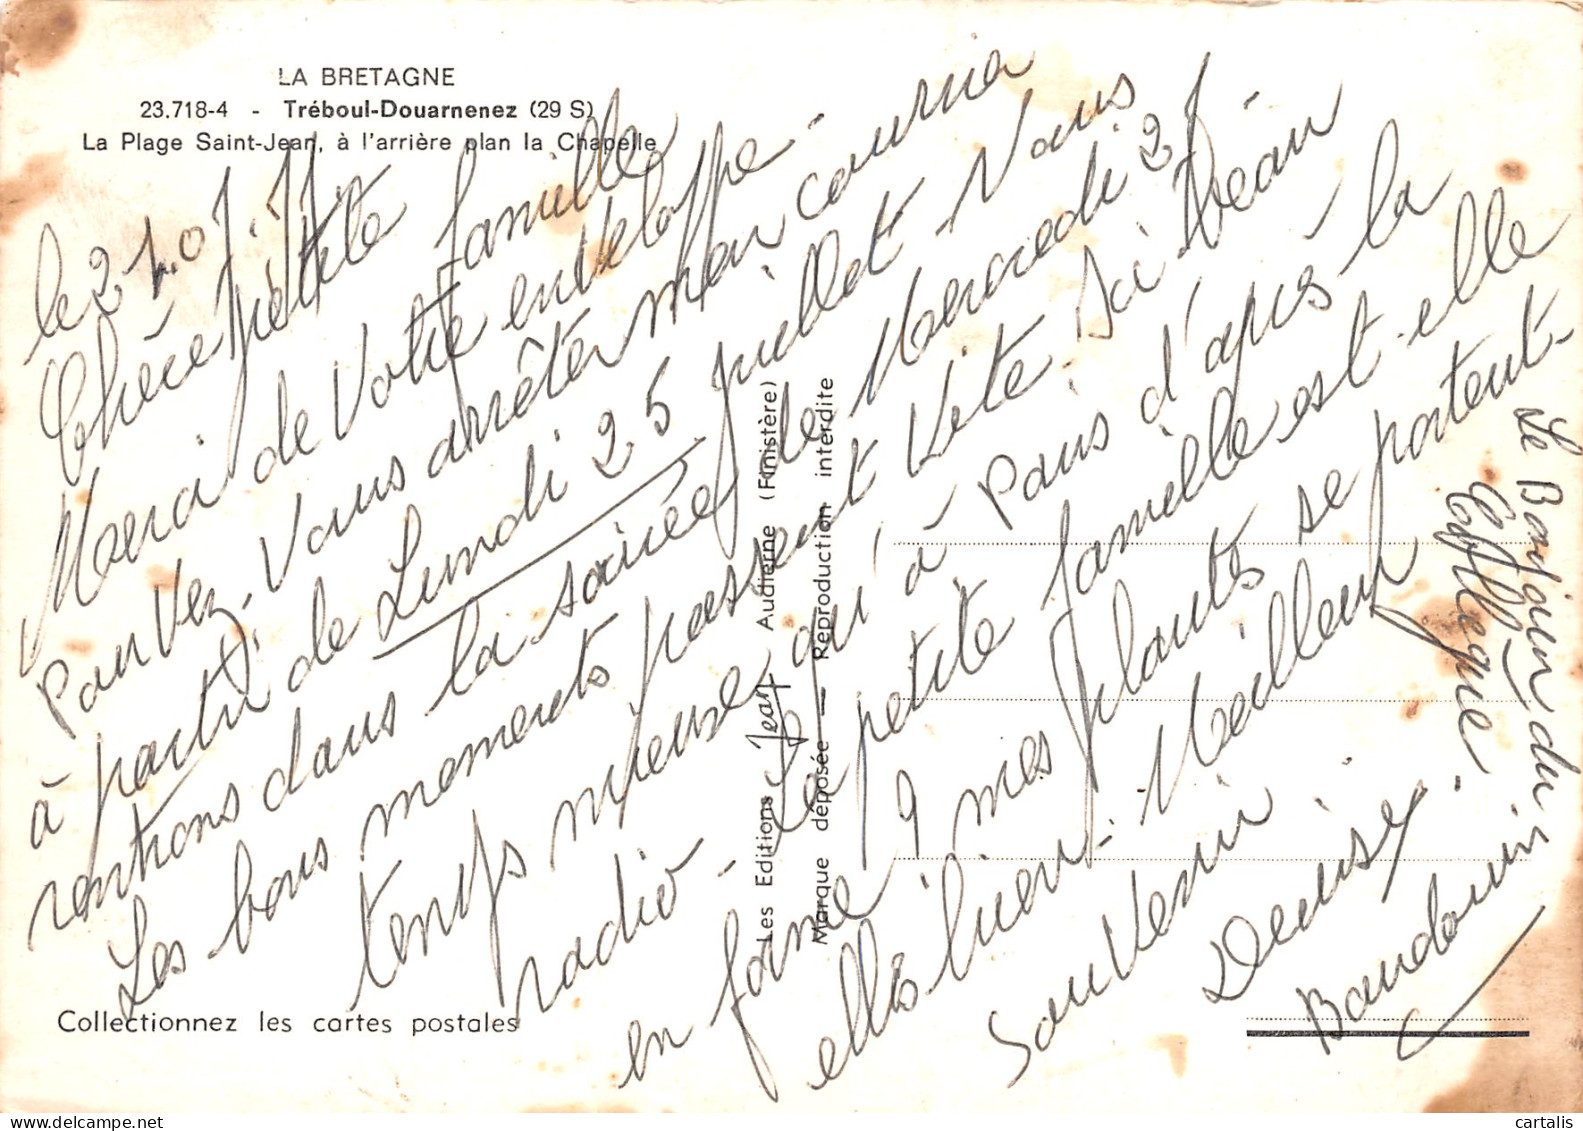 LA BRETAGNE
23.718-4 - Tréboul-Douarnenez (29 S)
La Plage Saint-Jean, à l'arrière plan la Chapelle
le 21.07.77
Chère petite famille
Merci de votre enveloppe -
Pouvez-vous arrêter mon courrier
à partir de Lundi 25 juillet. Nous
rentrons dans la soirée de Mercredi 27
Les bons moments passent vite. Ici beau
temps mieux qu'à Paris d'après la
radio - La petite famille est-elle
en forme ? mes plantes se portent-
elles bien - Meilleur
souvenir
Denise.
Baudouin
Le Bonjour du
Collègue
Les Editions Jean Audierne (Finistère)
Marque déposée — Reproduction interdite
Collectionnez les cartes postales
cartalis